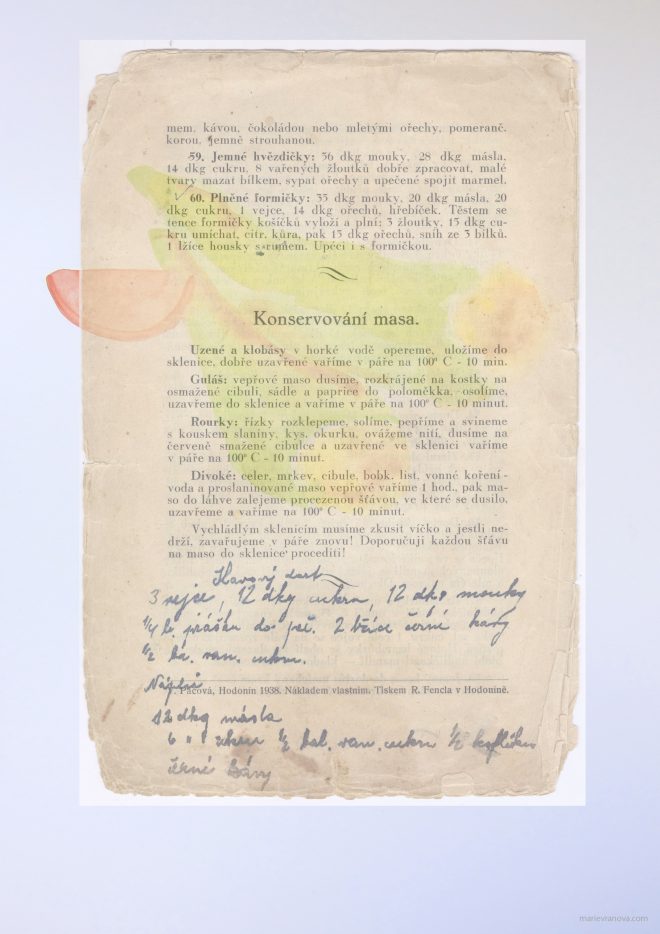 mem. kávou, čokoládou nebo mletými ořechy, pomeranč.
korou, jemně strouhanou.
59. Jemné hvězdičky: 36 dkg mouky, 28 dkg másla,
14 dkg cukru, 8 vařených žloutků dobře zpracovat, malé
tvary mazat bílkem, sypat ořechy a upečené spojit marmel.
60. Plněné formičky: 35 dkg mouky, 20 dkg másla, 20
dkg cukru, 1 vejce, 14 dkg ořechů, hřebíček. Těstem se
tence formičky košíčků vyloží a plní; 3 žloutky, 15 dkg cu-
kru umíchat, citr. kůra, pak 15 dkg ořechů, sníh ze 3 bílků,
1 lžíce housky s rumem. Upéci i s formičkou.
Konservování masa.
Uzené a klobásy v horké vodě opereme, uložíme do
sklenice, dobře uzavřené vaříme v páře na 100° C - 10 min.
Guláš: vepřové maso dusíme, rozkrájené na kostky na
osmažené cibuli, sádle a paprice do poloměkka, osolíme,
uzavřeme do sklenice a vaříme v páře na 100° C - 10 minut.
Rourky: řízky rozklepeme, solíme, pepříme a svineme
s kouskem slaniny, kys. okurku, ovážeme nití, dusíme na
červeně smažené cibulce a uzavřené ve sklenici vaříme
v páře na 100° C - 10 minut.
Divoké: celer, mrkev, cibule, bobk. list, vonné koření -
voda a proslaninované maso vepřové vaříme 1 hod., pak ma-
so do láhve zalejeme procezenou šťávou, ve které se dusilo,
uzavřeme a vaříme na 100° C - 10 minut.
Vychladlým sklenicím musíme zkusit víčko a jestli ne-
drží, zavařujeme v páře znovu! Doporučuji každou šťávu
na maso do sklenice procediti!
Kávový dort
3 vejce, 12 dkg cukru, 12 dkg mouky
1/4 b. prášku do peč. 2 lžíce černé kávy
1/2 ba. van. cukru.
Náplň
Pácová, Hodonín 1938. Nákladem vlastním. Tiskem R. Fencla v Hodoníně.
12 dkg másla
6 " cukru 1/2 bal. van. cukru 1/2
černé kávy
marievranova.com